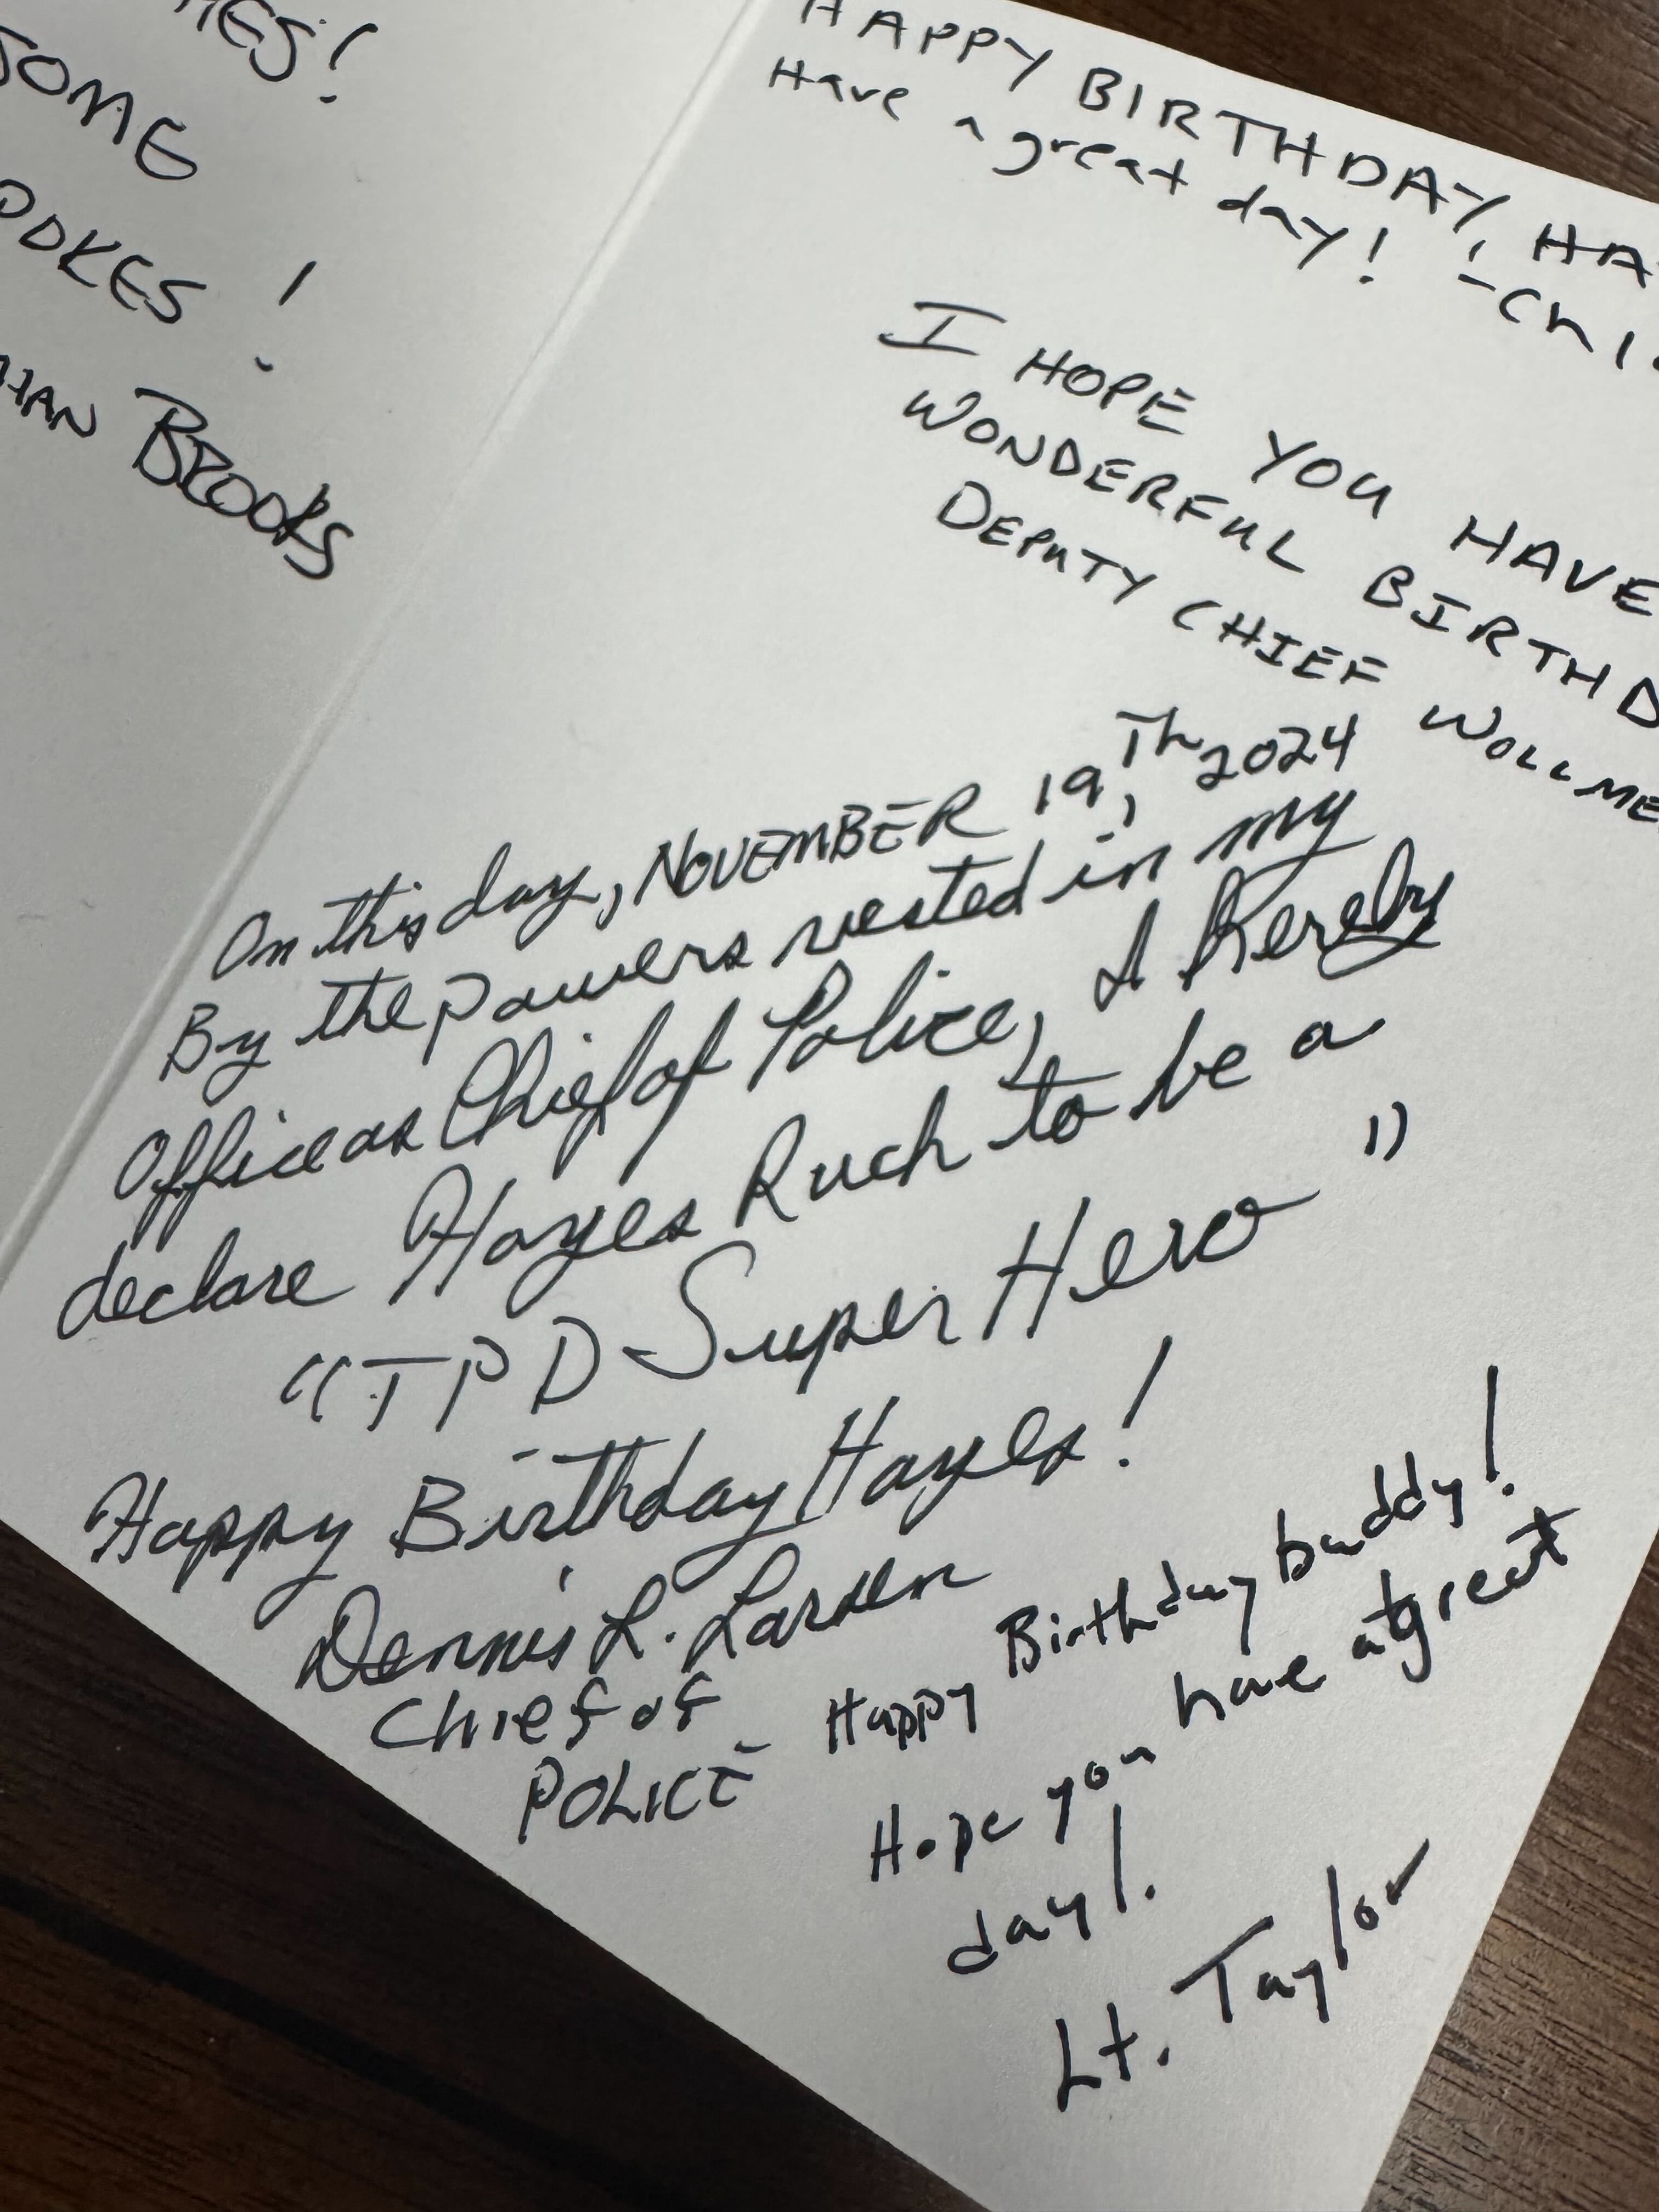 SOME
BROOKS
HAPPY BIRTHDAY,
Have a great day!
I HOPE YOU HAVE
WONDERFUL
DEPUTY CHIEF
On this day, NOVEMBER 19Th, 2024
By the powers vested in my
Office as Chief of Police, I hereby
declare Hayes Ruch to be a
"TPD Super Hero"
Happy Birthday Hayes!
Dennis L. Larsen
Chief of
POLICE
Happy Birthday buddy!
Hope you have a great
day!
Lt. Taylor